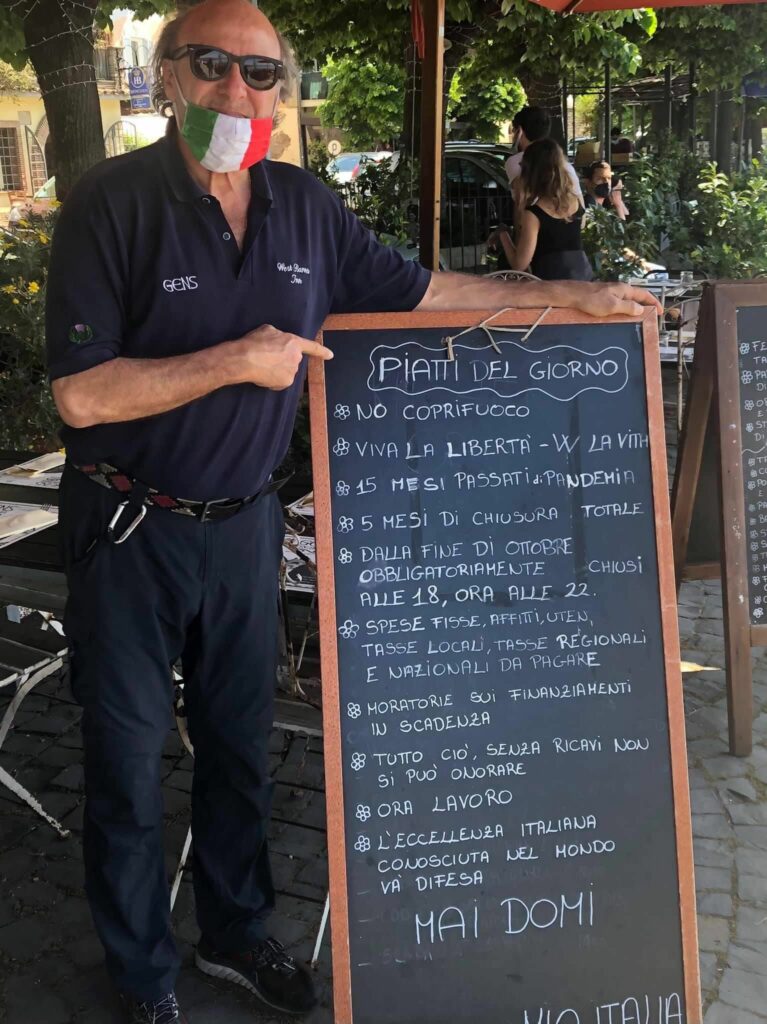 GENS
PIATTI DEL GIORNO
NO COPRIFUOCO
VIVA LA LIBERTÀ - W LA VITA
15 MESI PASSATI di PANDEMIA
5 MESI DI CHIUSURA TOTALE
DALLA FINE DI OTTOBRE
OBBLIGATORIAMENTE CHIUSI
ALLE 18, ORA ALLE 22.
SPESE FISSE, AFFITTI, UTEN,
TASSE LOCALI, TASSE REGIONALI
E NAZIONALI DA PAGARE
MORATORIE SUI FINANZIAMENTI
IN SCADENZA
TUTTO CIÒ, SENZA RICAVI NON
SI PUÒ ONORARE
ORA LAVORO
L'ECCELLENZA ITALIANA
CONOSCIUTA NEL MONDO
VÀ DIFESA
MAI DOMI
ITALIA